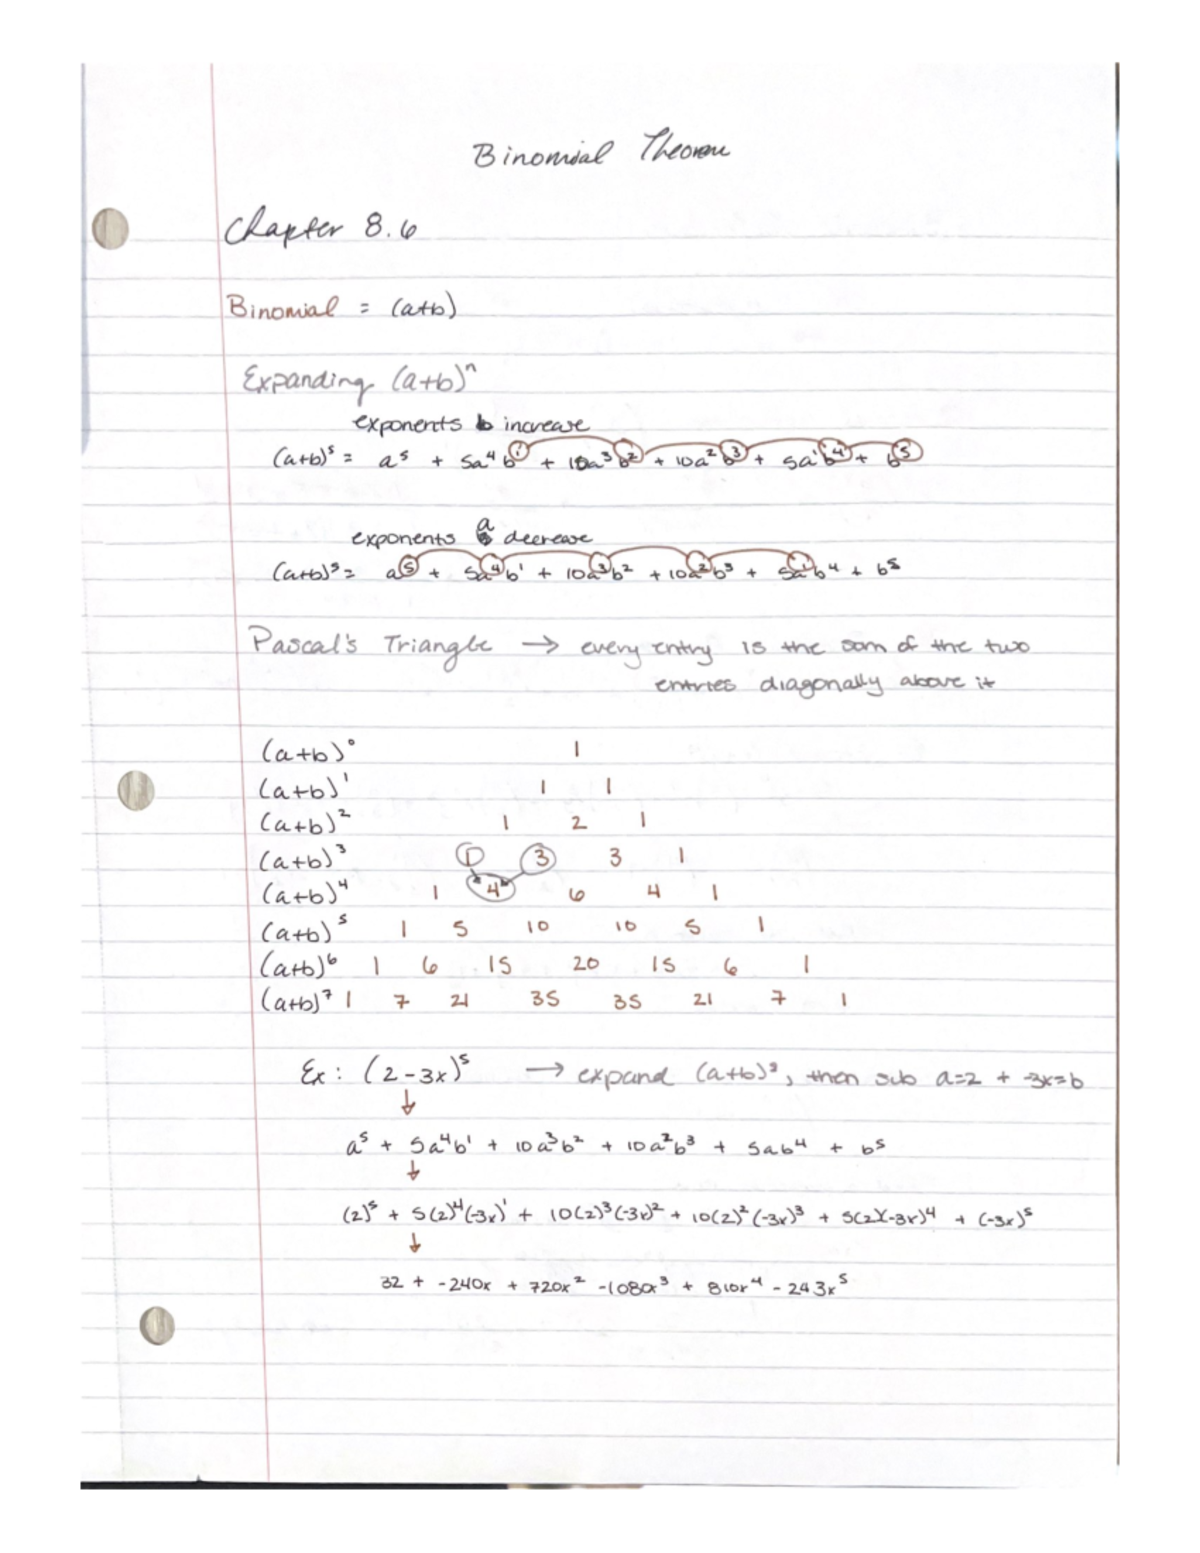 Binomial Theorem
Chapter 8.6
Binomial = (a+b)
Expanding (a+b)ⁿ
exponents b increase
(a+b)⁵ = a⁵ + 5a⁴b¹ + 10a³b² + 10a²b³ + 5a¹b⁴ + b⁵
exponents a decrease
(a+b)⁵ = a⁵ + 5a⁴b¹ + 10a³b² + 10a²b³ + 5a¹b⁴ + b⁵
Pascal's Triangle → every entry is the sum of the two
entries diagonally above it
(a+b)⁰ 1
(a+b)¹ 1 1
(a+b)² 1 2 1
(a+b)³ 1 3 3 1
(a+b)⁴ 1 4 6 4 1
(a+b)⁵ 1 5 10 10 5 1
(a+b)⁶ 1 6 15 20 15 6 1
(a+b)⁷ 1 7 21 35 35 21 7 1
Ex: (2-3x)⁵ → expand (a+b)⁵, then sub a=2 + -3x=b
↓
a⁵ + 5a⁴b¹ + 10a³b² + 10a²b³ + 5ab⁴ + b⁵
↓
(2)⁵ + 5(2)⁴(-3x)¹ + 10(2)³(-3x)² + 10(2)²(-3x)³ + 5(2)(-3x)⁴ + (-3x)⁵
↓
32 + -240x + 720x² -1080x³ + 810x⁴ - 243x⁵